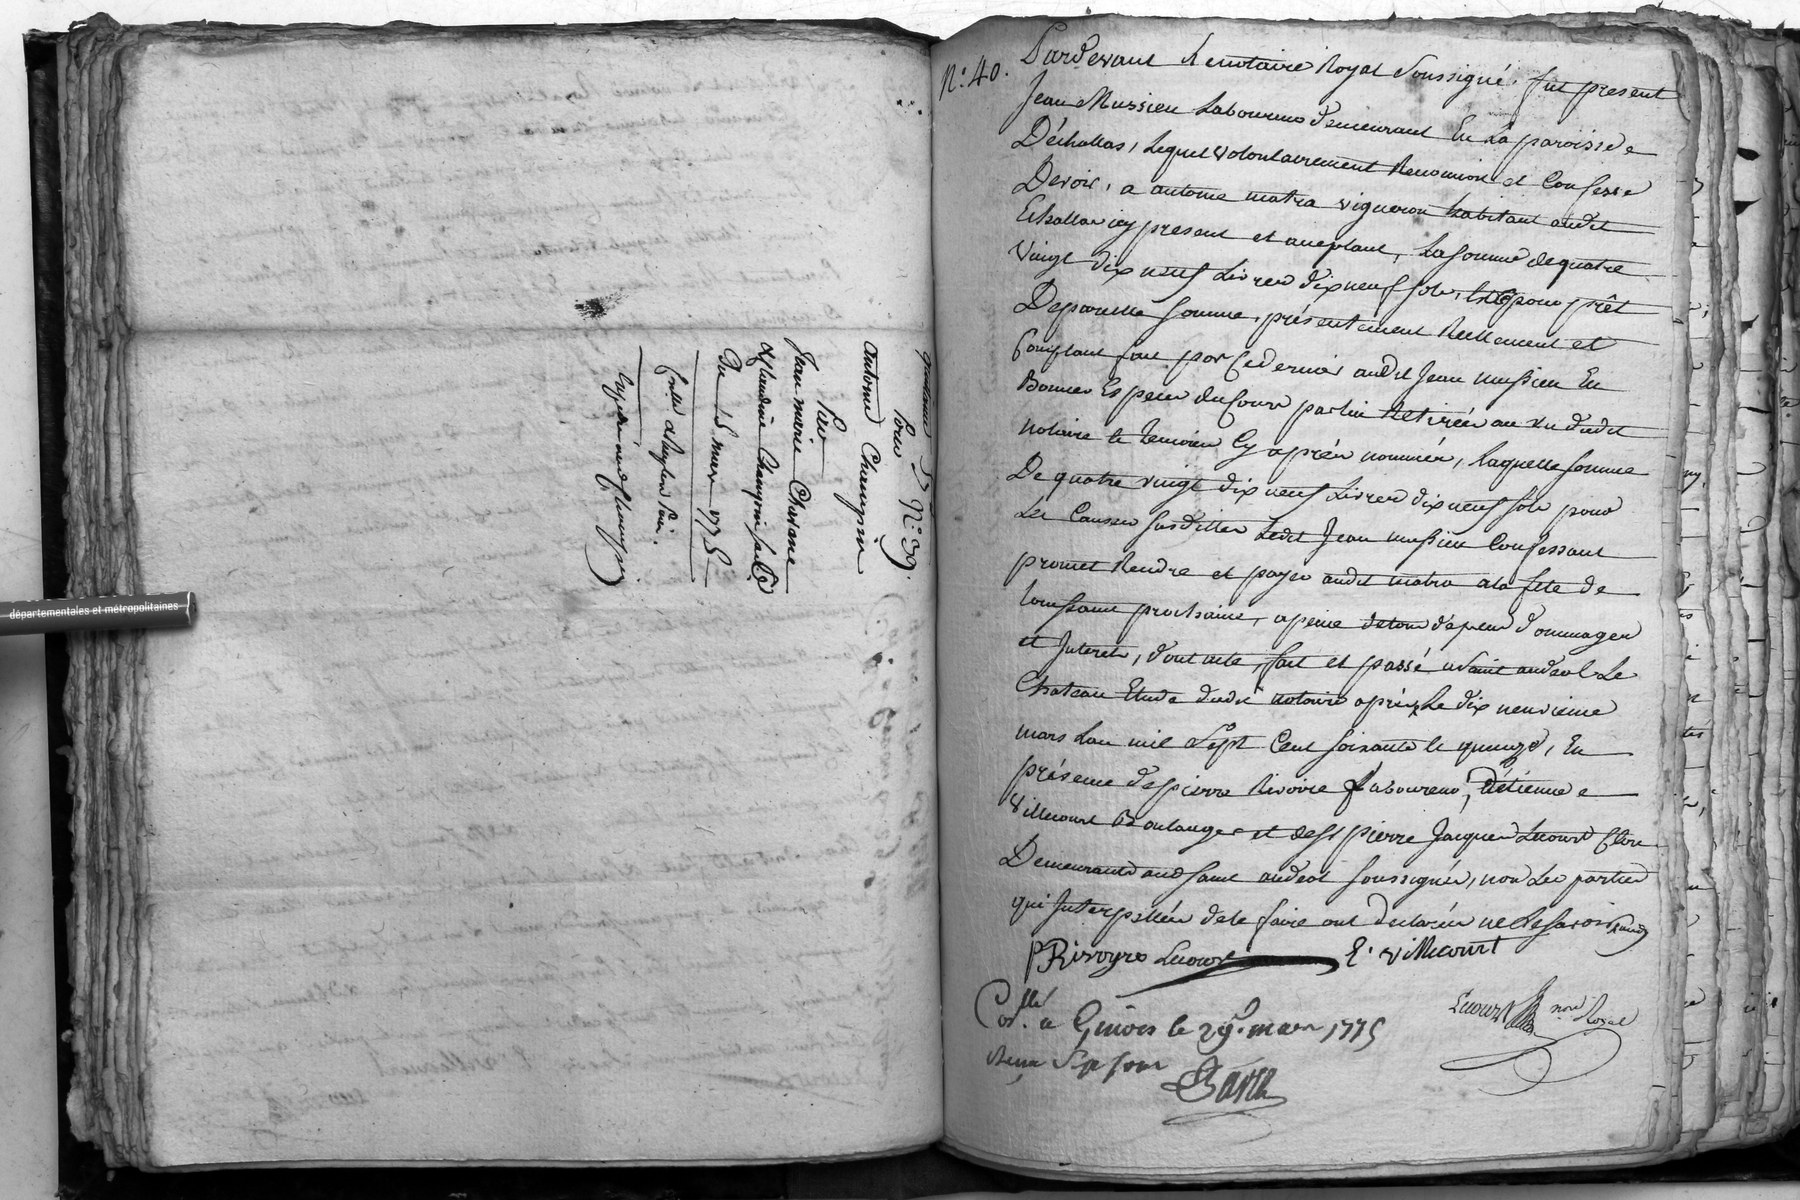 départementales et métropolitaines
quittance N.° 39.
Pour
antoine Champin
Par
Jean marie Chavane
& Claudine Champin sa f.e
Du 15 mars 1775
N.° 40.
Pardevant le notaire Royal Soussigné. fut present
Jean Mussieu Laboureur demeurant En La paroisse
D'échallas, Lequel volontairement Reconnoit et Confesse
Devoir, a antoine matra vigneron habitant audit
Echallas icy present et acceptant, La somme de quatre
vingt dix neuf Livres dix neuf sols, pour prêt
De pareille somme, présentement Reellement et
Comptant fait par Ce dernier audit Jean mussieu En
Bonnes Especes du Cours par lui Retirées au vu dudit
notaire et temoins Cy après nommés, Laquelle somme
De quatre vingt dix neuf Livres dix neuf sols pour
Les Causes susdittes Ledit Jean mussieu Confessant
promet Rendre et payer audit matra a la fete de
toussaint prochaine, a peine de tous dépens dommages
et Interets, dont acte, fait et passé a saint andeol Le
Chateau Etude dudit notaire après Le dix neuvieme
mars L'an mil Sept Cent soixante et quinze, En
présence de pierre Rivoire Laboureur, d'étienne
Villecourt Boulanger et de s.r pierre Jacques Lecourt Clerc
Demeurants aud saint andeol soussignés, non Les parties
qui Interpellées de le faire ont declarées ne Le savoir
P Rivoyre Lecourt E. villecourt
Con.llé a Givors le 29.e mars 1775
Lecourt no.re Royal
Reçu Sep sous